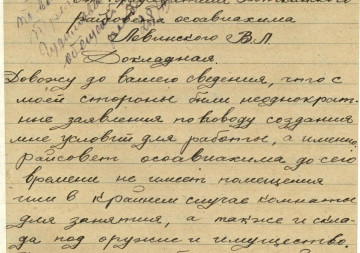 Райсовета осоавиахима
Левинского В.Л.
Докладная.
Довожу до вашего сведения, что с
моей стороны были неоднократ-
ные заявления по поводу создания
мне условий для работы, а именно:
Райсовет осоавиахима до сего
времени не имеет помещения
или в крайнем случае комнаты
для занятия, а также и скла-
да под оружие и имущество.